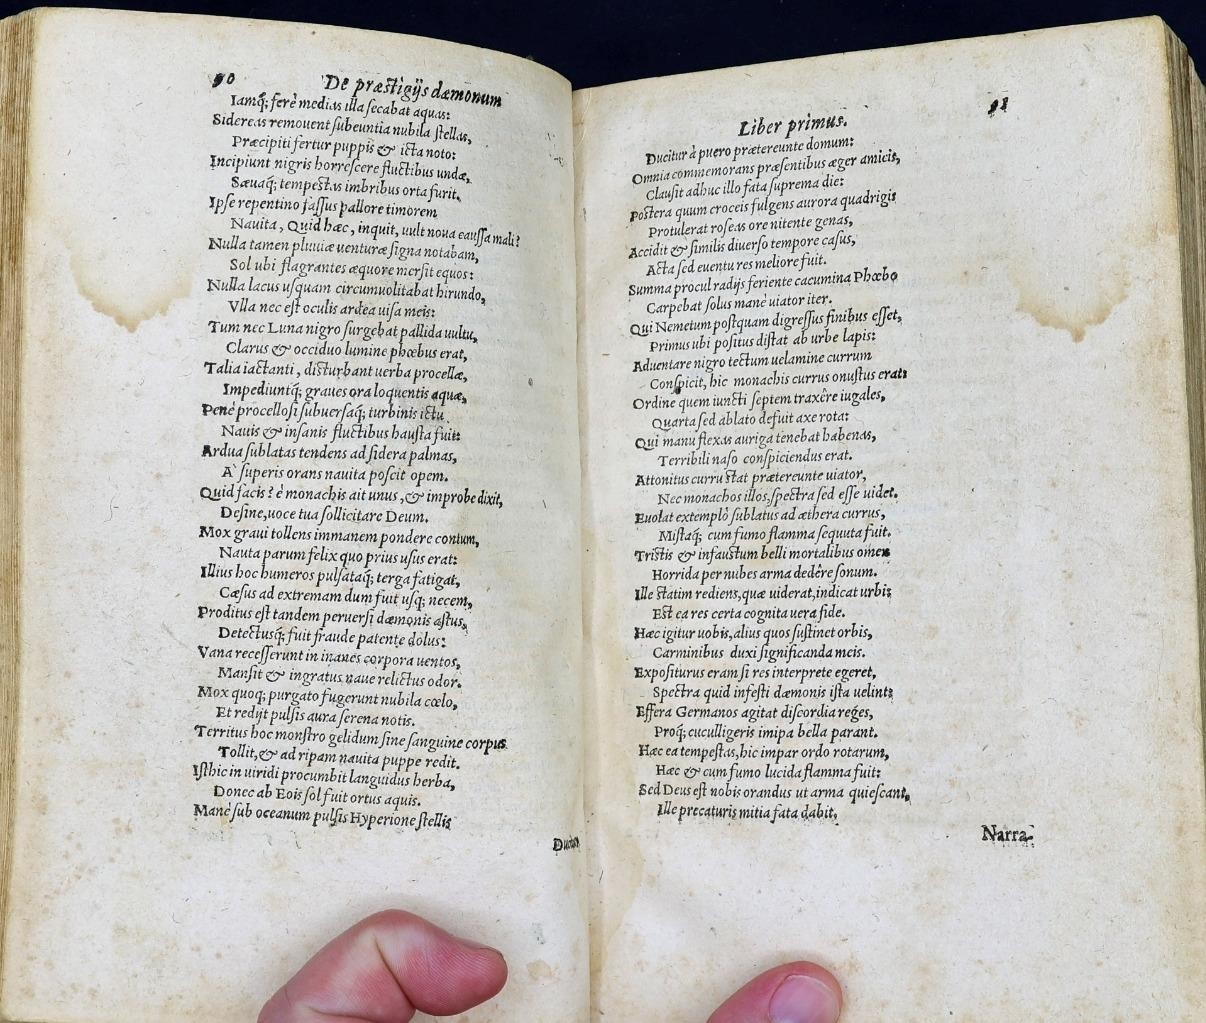 90 De præstigijs dæmonum
Iamq́; ferè medias illa secabat aquas:
Sidereas remouent subeuntia nubila stellas,
Præcipiti fertur puppis & icta noto:
Incipiunt nigris horrescere fluctibus undæ,
Sæuaq́; tempestas imbribus orta furit.
Ipse repentino passus pallore timorem
Nauita, Quid hæc, inquit, uult noua caussa mali?
Nulla tamen pluuiæ venturæ signa notabam,
Sol ubi flagrantes æquore mersit equos:
Nulla lacus usquam circumuolitabat hirundo,
Vlla nec est oculis ardea uisa meis:
Tum nec Luna nigro surgebat pallida uultu,
Clarus & occiduo lumine phœbus erat,
Talia iactanti, disturbant uerba procellæ,
Impediuntq́; graues ora loquentis aquæ,
Penè procellosi subuersaq́; turbinis ictu
Nauis & insanis fluctibus hausta fuit:
Ardua sublatas tendens ad sidera palmas,
A` superis orans nauita poscit opem.
Quid facis? è monachis ait unus, & improbe dixit,
Desine, uoce tua sollicitare Deum.
Mox graui tollens immanem pondere contum,
Nauta parum felix quo prius usus erat:
Illius hoc humeros pulsataq́; terga fatigat,
Cæsus ad extremam dum fuit usq; necem,
Proditus est tandem peruersi dæmonis astus,
Detectusq́; fuit fraude patente dolus:
Vana recesserunt in inanes corpora uentos,
Mansit & ingratus naue relictus odor.
Mox quoq; purgato fugerunt nubila cœlo,
Et redijt pulsis aura serena notis.
Territus hoc monstro gelidum sine sanguine corpus
Tollit, & ad ripam nauita puppe redit.
Isthic in uiridi procumbit languidus herba,
Donec ab Eois sol fuit ortus aquis.
Manè sub oceanum pulsis Hyperione stellis
Ducitur
Liber primus. 91
Ducitur à puero prætereunte domum:
Omnia commemorans præsentibus æger amicis,
Clausit adhuc illo fata suprema die:
Postera quum croceis fulgens aurora quadrigis
Protulerat roseas ore nitente genas,
Accidit & similis diuerso tempore casus,
Acta sed euentu res meliore fuit.
Summa procul radijs feriente cacumina Phœbo
Carpebat solus manè uiator iter.
Qui Nemetum postquam digressus finibus esset,
Primus ubi positus distat ab urbe lapis:
Aduentare nigro tectum uelamine currum
Conspicit, hic monachis currus onustus erat:
Ordine quem iuncti septem traxêre iugales,
Quarta sed ablato defuit axe rota:
Qui manu flexas auriga tenebat habenas,
Terribili naso conspiciendus erat.
Attonitus curru stat prætereunte uiator,
Nec monachos illos, spectra sed esse uidet.
Euolat extemplò sublatus ad æthera currus,
Mistaq́; cum fumo flamma sequuta fuit.
Tristis & infaustum belli mortalibus omen
Horrida per nubes arma dedêre sonum.
Ille statim rediens, quæ uiderat, indicat urbi:
Est ea res certa cognita uera fide.
Hæc igitur uobis, alius quos sustinet orbis,
Carminibus duxi significanda meis.
Expositurus eram si res interprete egeret,
Spectra quid infesti dæmonis ista uelint:
Effera Germanos agitat discordia reges,
Proq́; cuculligeris impia bella parant.
Hæc ea tempestas, hic impar ordo rotarum,
Hæc & cum fumo lucida flamma fuit:
Sed Deus est nobis orandus ut arma quiescant,
Ille precaturis mitia fata dabit,
Narra-